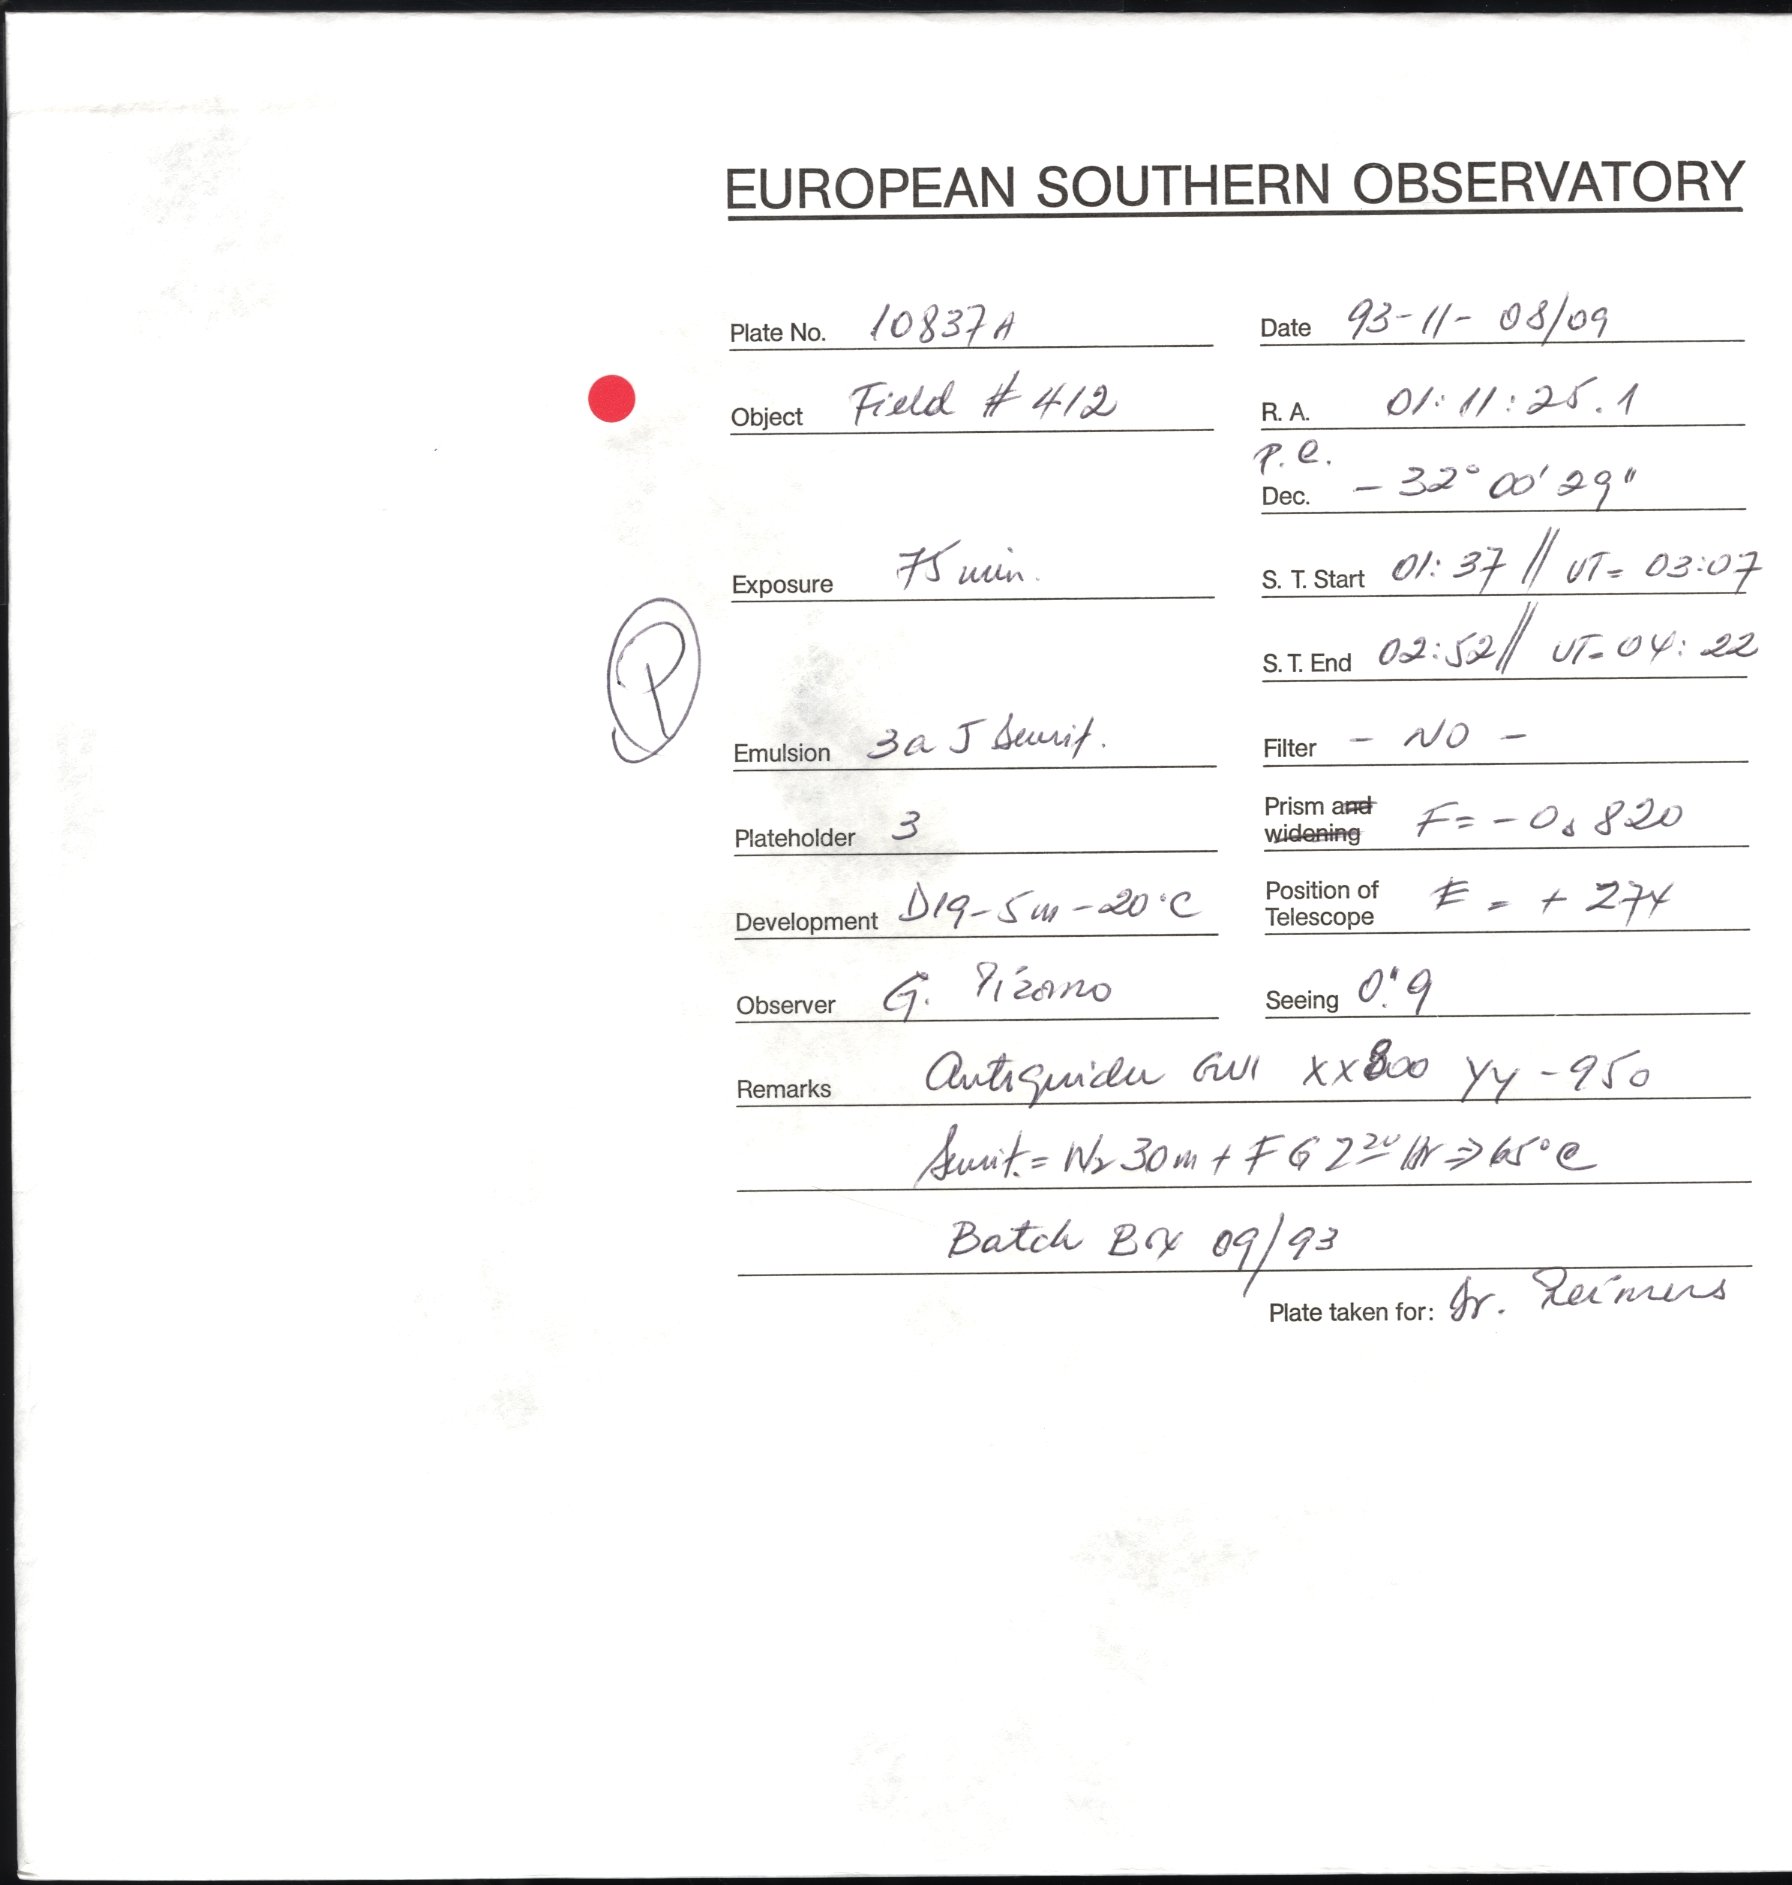 EUROPEAN SOUTHERN OBSERVATORY
Plate No. 10837A Date 93-11- 08/09
Object Field # 412 R. A. 01:11:25.1
P.C.
Dec. - 32° 00' 29"
Exposure 75 min. S. T. Start 01:37 // UT= 03:07
S. T. End 02:52 // UT= 04:22
P
Emulsion 3a J Sensit. Filter - NO -
Plateholder 3 Prism and widening F= -0,820
Development D19-5m-20°C Position of Telescope E = + 274
Observer G. Pizarro Seeing 0"9
Remarks XX800 YY -950
Sensit.= N2 30m + F G 2 20 Hr => 65°C
Batch Box 09/93
Plate taken for: Dr. Reimers